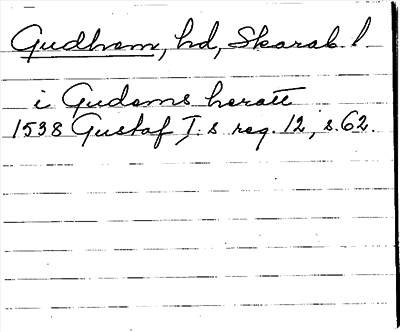 Gudhem, hd, Skarab. l.
i Gudems heratt
1538 Gustaf I:s reg. 12, s. 62.